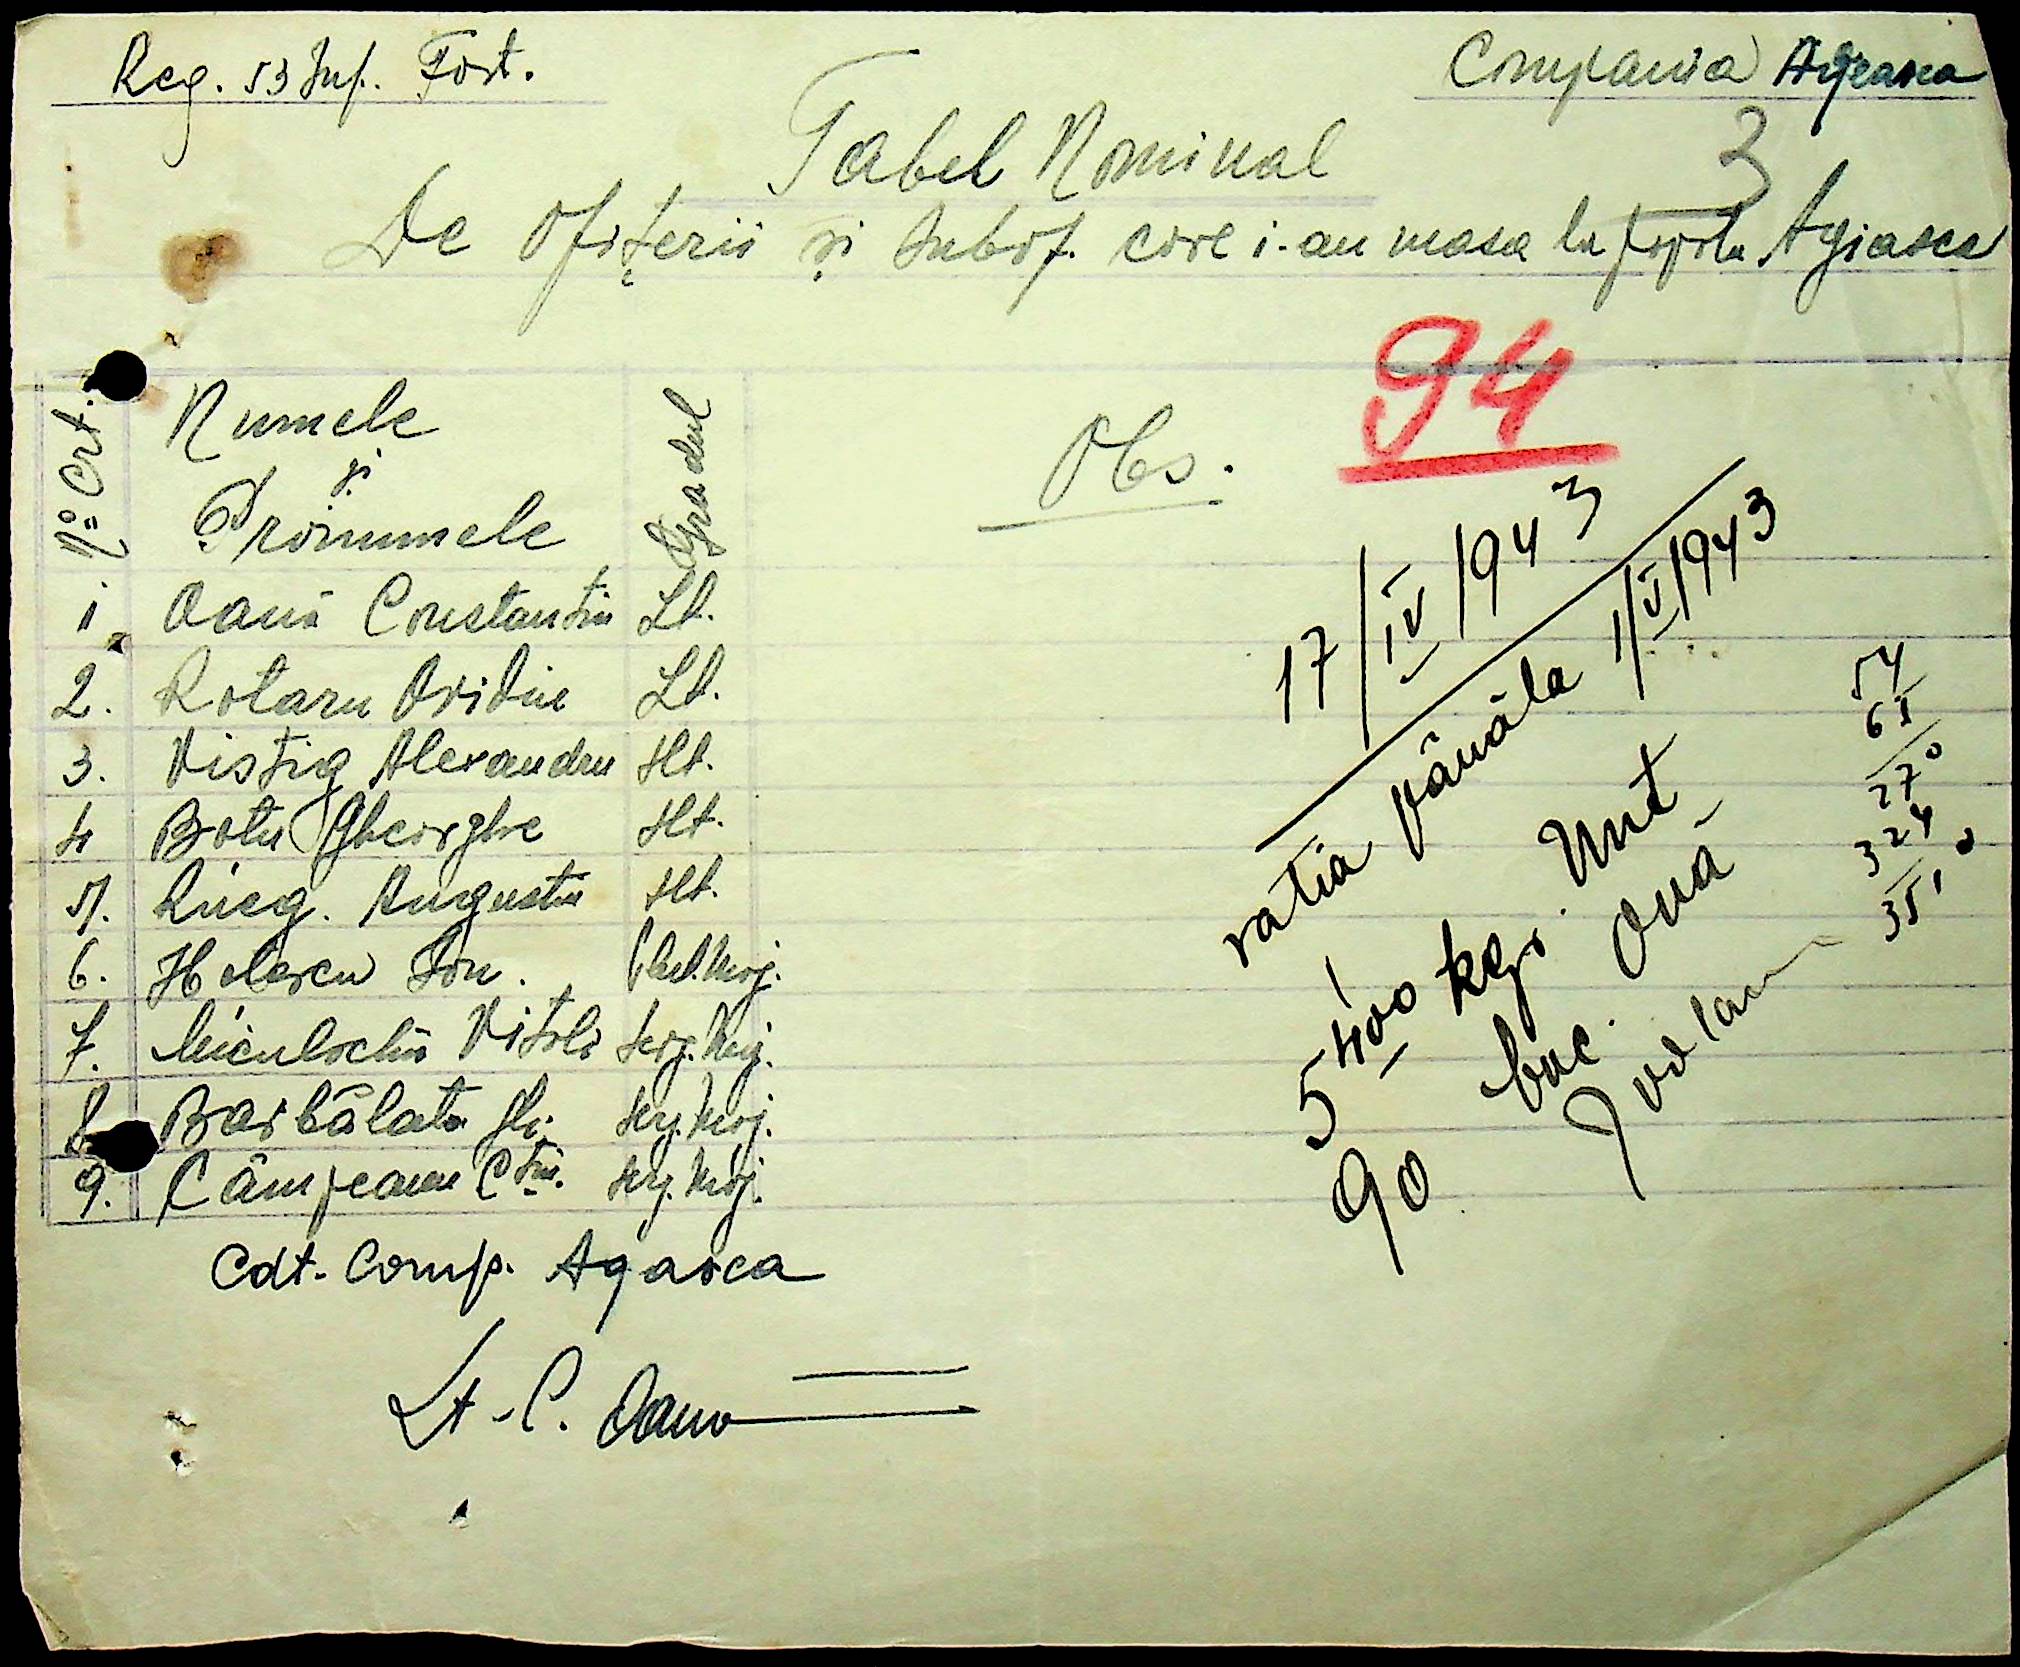 Reg. 53 Inf. Fort.
Compania Ageasca
3
Tabel Nominal
De Ofițerii și Subof. care i-au masa la Agiasca
94
No Crt.
Numele
și
Pronumele
Gradul
Obs.
1. Oană Constantin Lt.
2. Rotaru Ovidiu Lt.
3. Vistig Alexandru Slt.
4 Botu Gheorghe Slt.
5. Augustin Slt.
6. Ion. Maj.
7. Serg. Maj.
8. Barbălată Gh. Serg. Maj.
9. Câmpeanu Ctin. Serg. Maj.
17/IV/1943
ratia până la 1/V/1943
5,400 kgr. Unt
90 buc. Ouă
54
65
270
324
3510
Cdt. Comp. Agasca
Lt. C. Oană